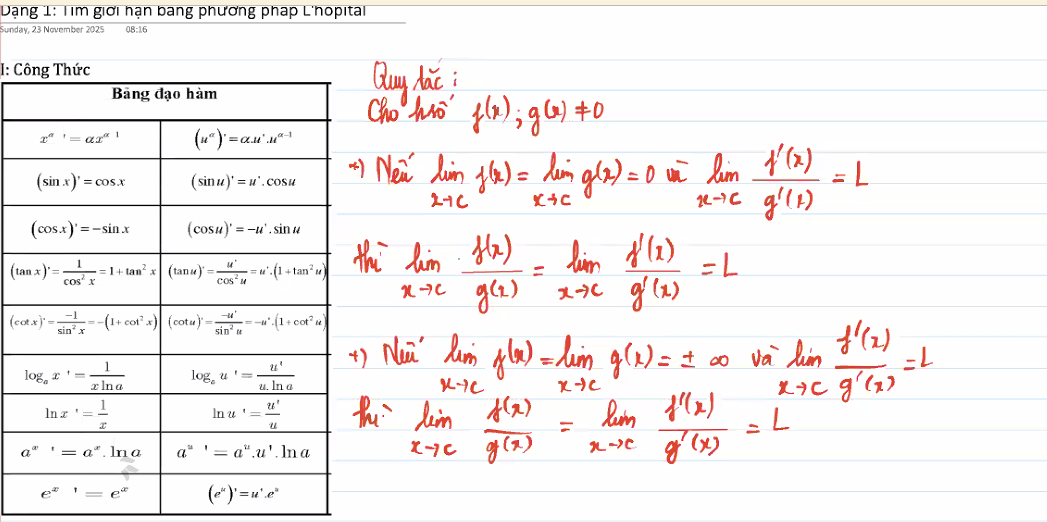 Dạng 1: Tìm giới hạn bằng phương pháp L'hopital
Sunday, 23 November 2025 08:16
I: Công Thức
Bảng đạo hàm
x^α ' = αx^(α-1) (u^α)' = α.u'.u^(α-1)
(sin x)' = cos x (sin u)' = u'.cosu
(cos x)' = −sin x (cosu)' = −u'.sin u
(tan x)' = 1/cos² x = 1 + tan² x (tan u)' = u'/cos² u = u'.(1 + tan² u)
(cot x)' = −1/sin² x = −(1 + cot² x) (cot u)' = −u'/sin² u = −u'.(1 + cot² u)
log_a x ' = 1/(x ln a) log_a u ' = u'/(u. ln a)
ln x ' = 1/x ln u ' = u'/u
a^x ' = a^x. ln a a^u ' = a^u.u'. ln a
e^x ' = e^x (e^u)' = u'.e^u
Quy tắc :
Cho hsố f(x) ; g(x) ≠ 0
+) Nếu lim x→c f(x) = lim x→c g(x) = 0 và lim x→c f'(x)/g'(x) = L
thì lim x→c f(x)/g(x) = lim x→c f'(x)/g'(x) = L
+) Nếu lim x→c f(x) = lim x→c g(x) = ± ∞ và lim x→c f'(x)/g'(x) = L
thì lim x→c f(x)/g(x) = lim x→c f'(x)/g'(x) = L